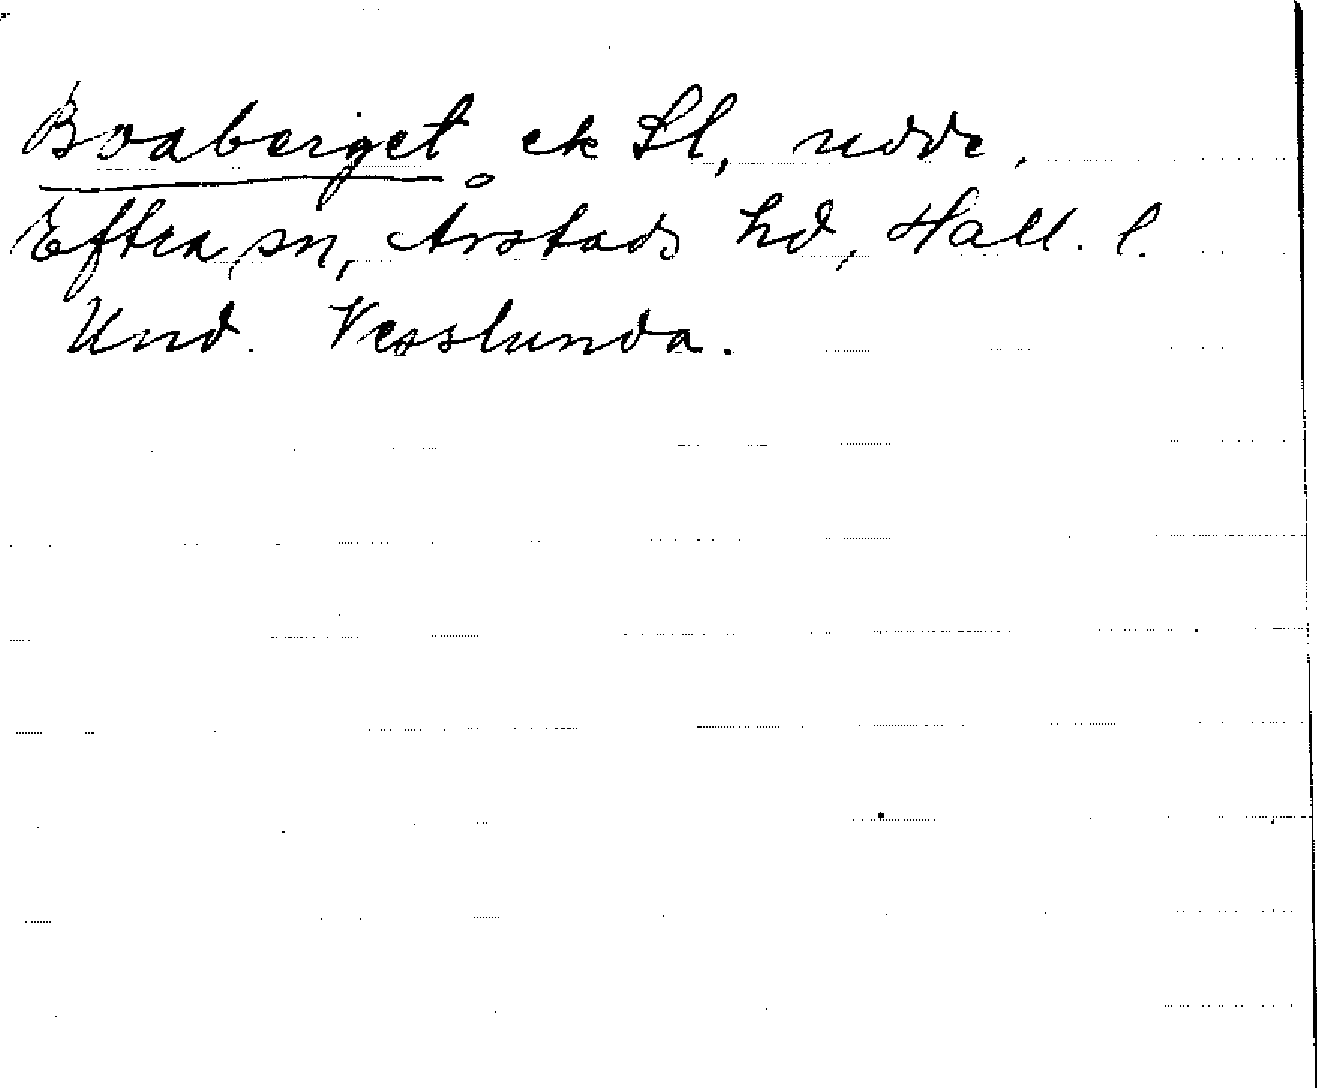 Boaberget ek Sl, udde,
Eftra sn, Årstads hd, Hall. l.
Und. Vesslunda.